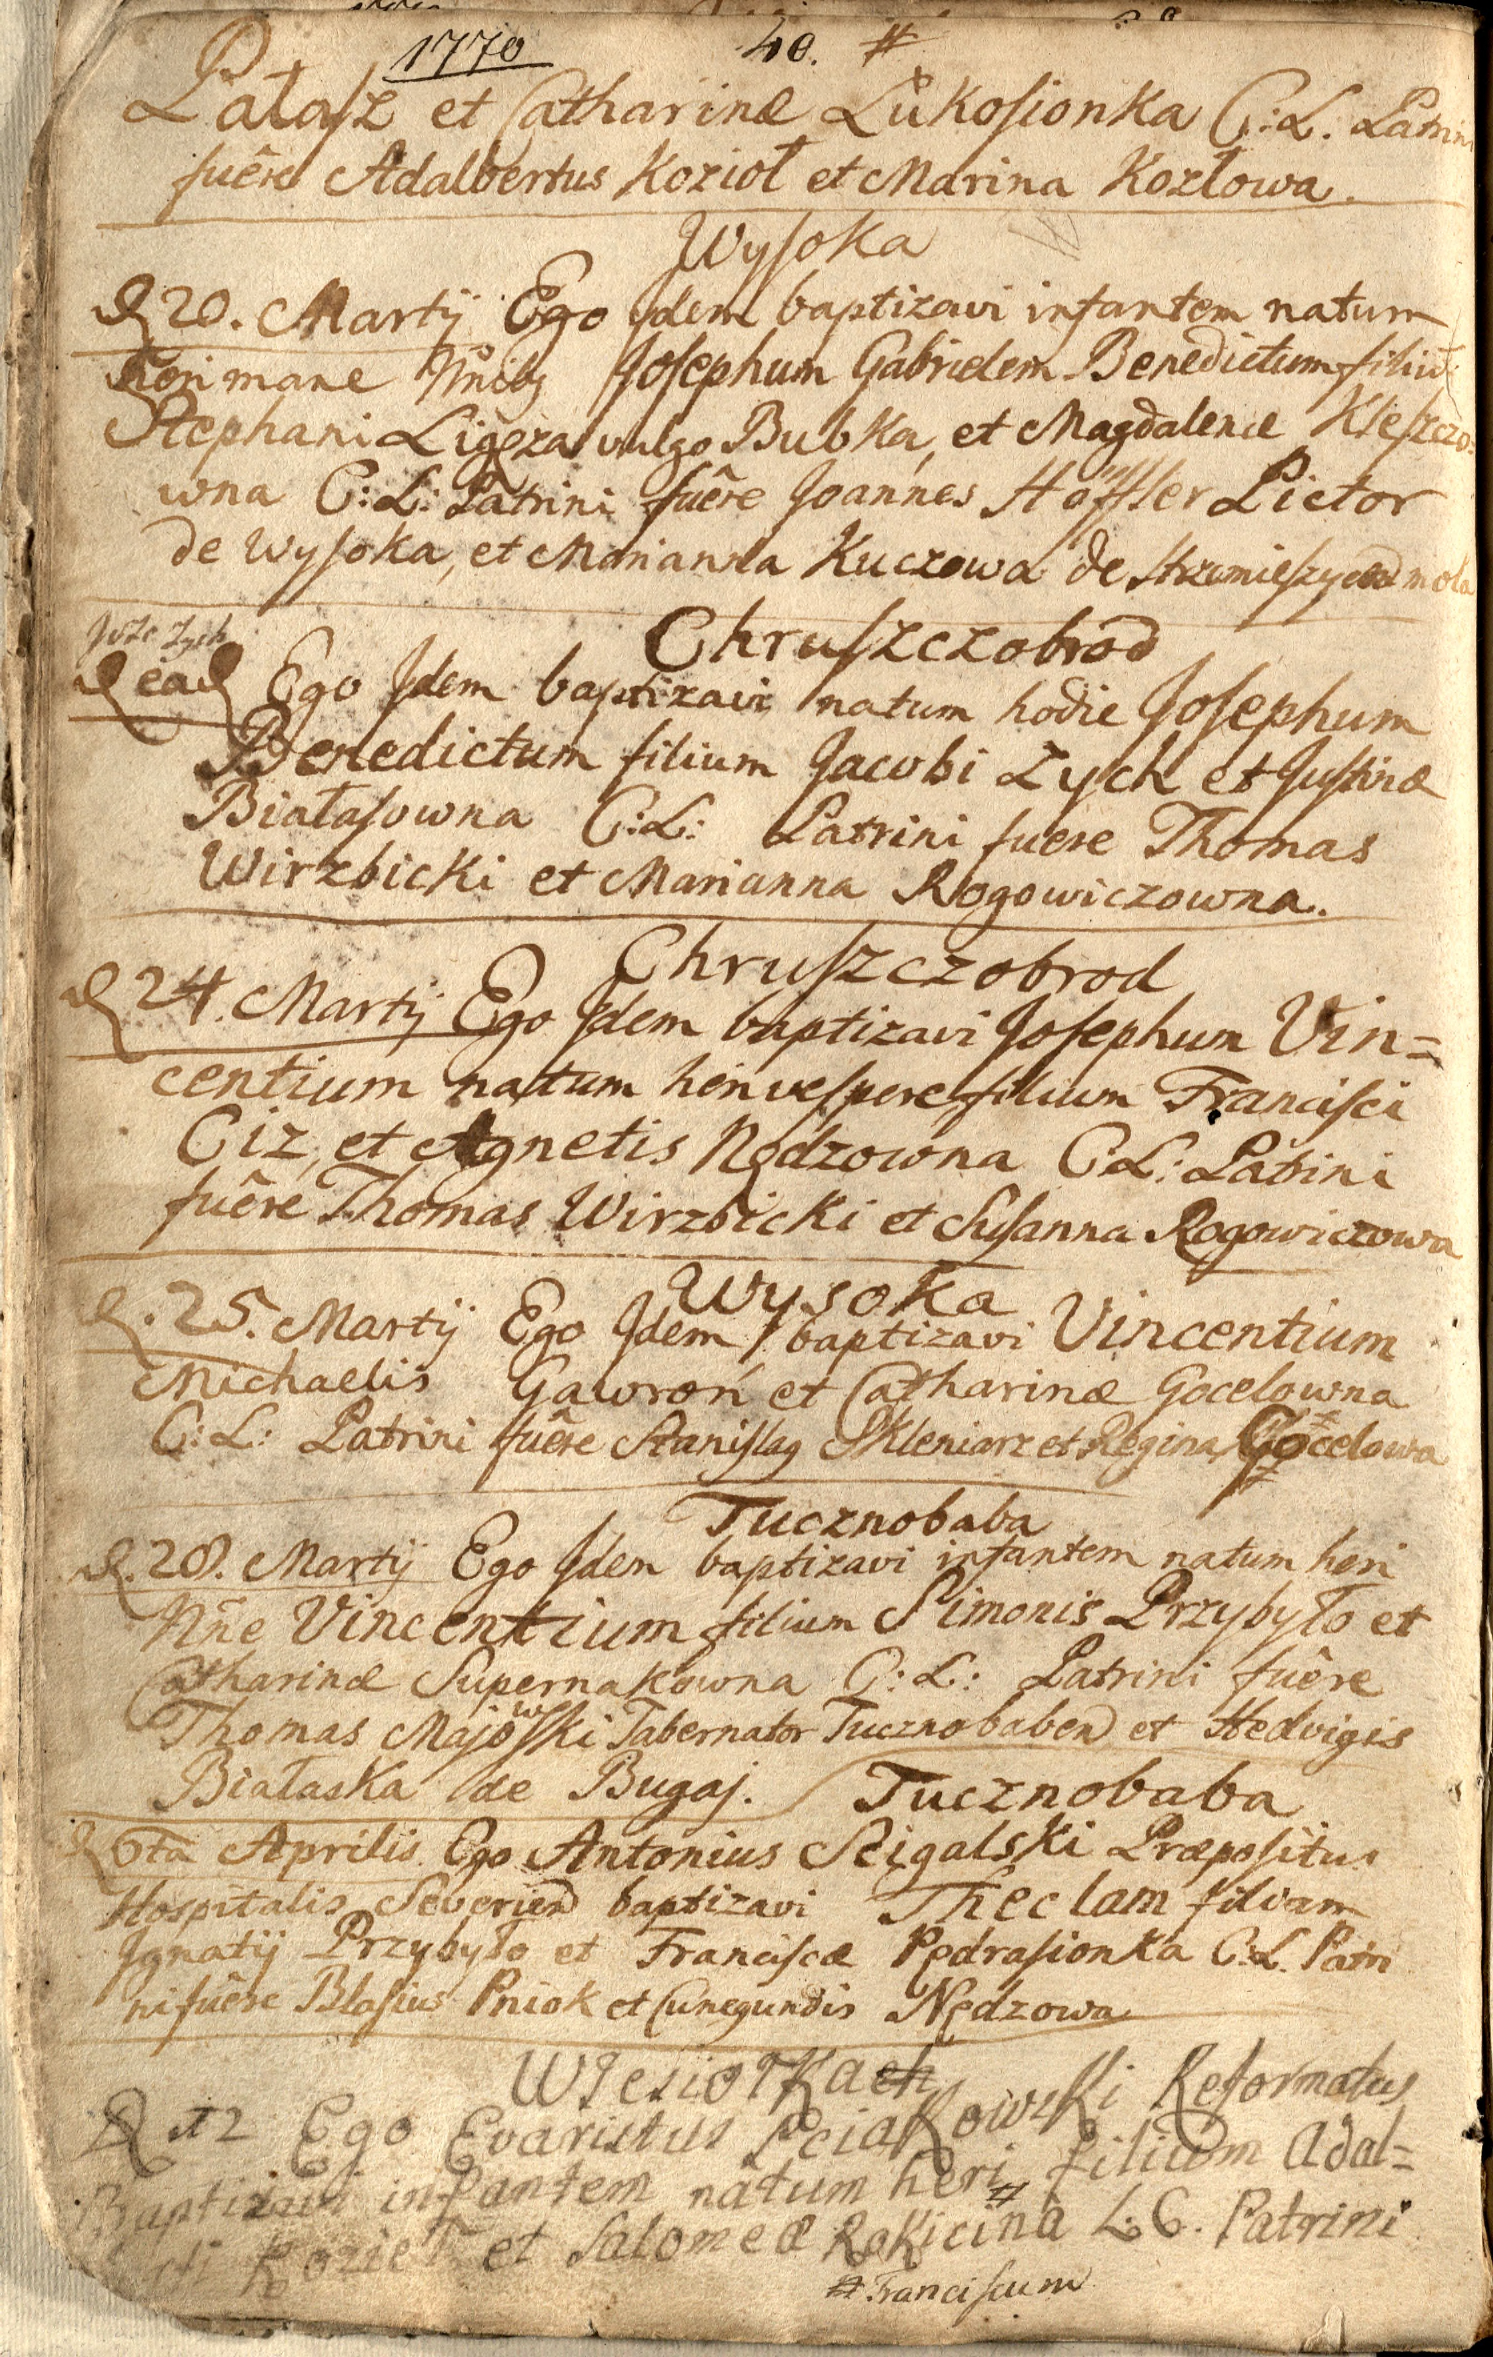 1770 40. #
Pałasz et Catharinæ Lukosionka C: L. Patrini
fuêre Adalbertus Kozioł et Marina Kozłowa.
Wysoka
D 20. Martij Ego Idem baptizavi infantem natum
heri mane Nñibg Josephum Gabrielem Benedictum filiũ
Stephani Ligęza vulgo Bubka, et Magdalenæ Kleszczo-
wna C: L: Patrini fuêre Joannes Hoffler Pictor
de Wysoka, et Marianna Kuczowa de mola
Joze Zych
D ead Chruszczobrod
Ego Idem baptizavi natum hodie Josephum
Benedictum filium Jacobi Zych et Justinæ
Białasowna C: L: Patrini fuere Thomas
Wirzbicki et Marianna Rogowiczowna.
Chruszczobrod
D 24. Martij Ego Idem baptizavi Josephum Vin=
centium natum heri vespere filium Francisci
Ciz, et Agnetis Nędzowna C L: Patrini
fuêre Thomas Wirzbicki et Susanna Rogowiczowa
Wysoka
D. 25. Martij Ego Idem baptizavi Vincentium
Michaelis Gawroń et Catharinæ Gocelowna
C: L: Patrini fuêre Stanislag Skleniarz et Regina Gocelowa
Tucznobaba
D. 28. Martij Ego Idem baptizavi infantem natum heri
Nñe Vincentium filium Simonis Przybyło et
Catharinæ Supernakowna C: L: Patrini fuêre
Thomas Majowski Tabernator Tucznobabend et Hedvigis
Białaska de Bugaj. Tucznobaba
D 6ta Aprilis Ego Antonius Scigalski Præpositus
Hospitalis Severiend baptizavi Theclam filiam
Ignatij Przybyło et Franciscæ Pędrasionka C. L. Patri
ni fuêre Blasius Pniok et Cunegundis Nędzowa
Wiesiołka
D 12 Ego Evaristus Reformatus
Baptizavi infantem natum heri # filium Adal=
berti Kozieł et Salomeæ Rokicina L. C. Patrini
# Franciscum